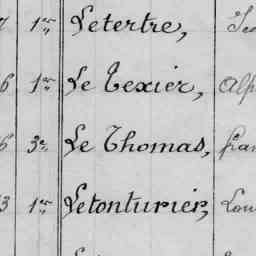 1er Letertre,
6 1er Le Texier, Alp
6 3e Le Thomas, fran
3 1er Letonturier, Lou